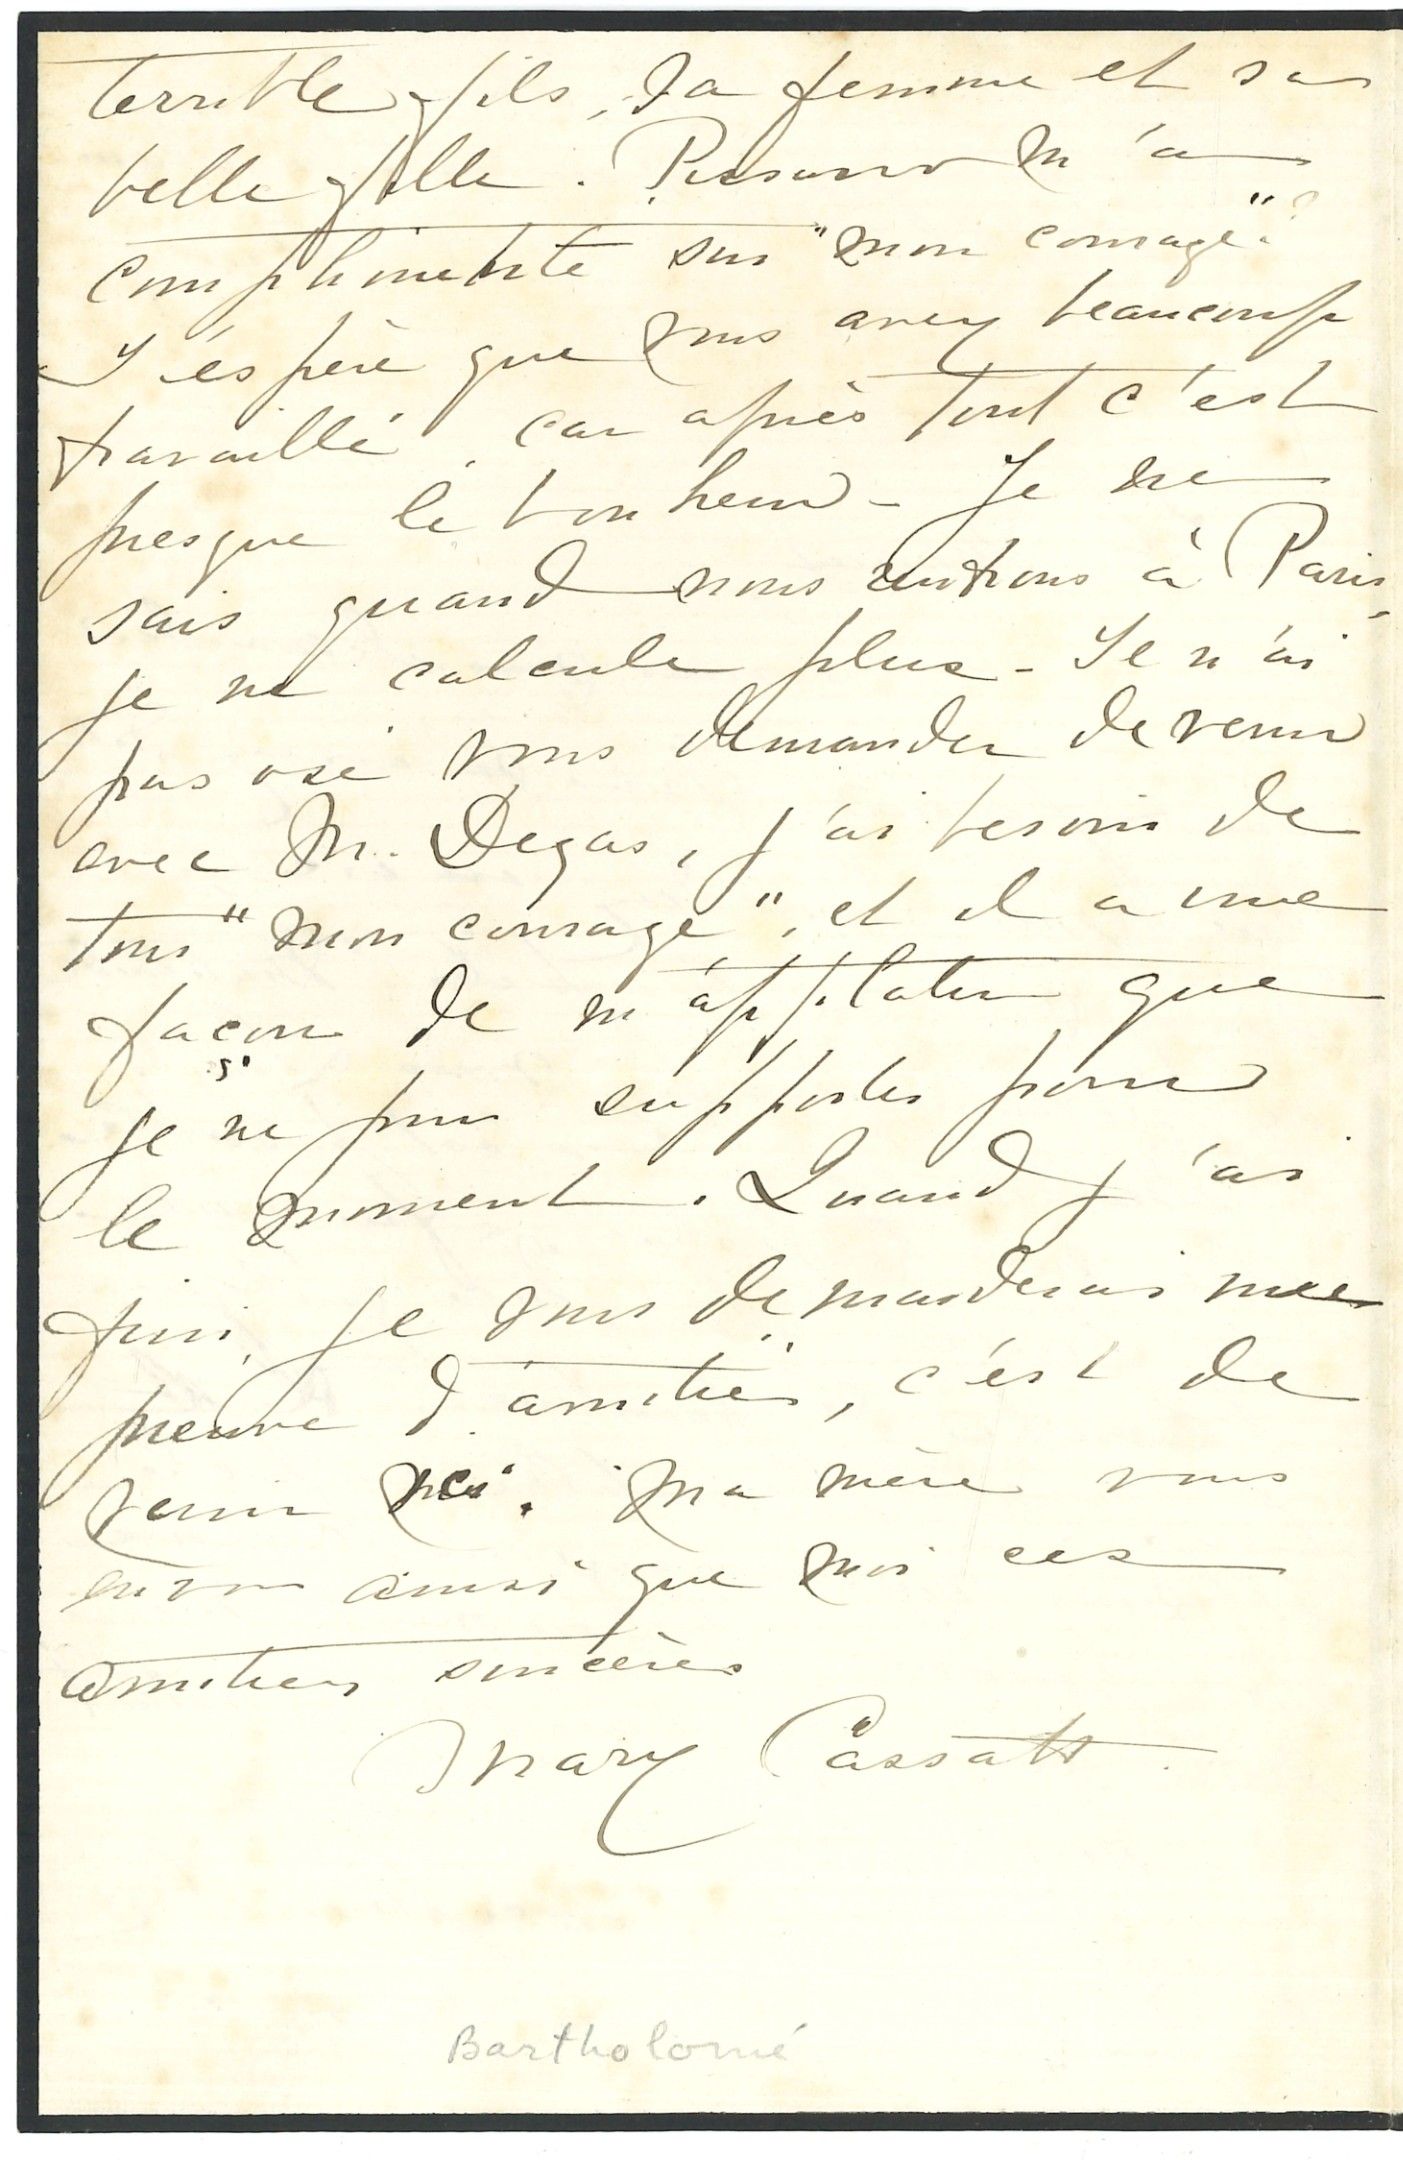 terrible fils, sa femme et sa
belle fille. Pissarro m'a
complimenté sur "mon courage".
J'éspère que vous avez beaucoup
travaillé, car après tout c'est
presque le bonheur - Je ne
sais quand nous rentrons à Paris,
je ne calcule plus - Je n'ai
pas osé vous demander de venir
avec M. Degas, j'ai besoin de
tout "mon courage", et il a une
façon de m'applatir que
je ne puis supporter pour
le moment. Quand j'ai
fini, je vous demanderai une
preuve d'amitié, c'est de
venir ici. Ma mère vous
envoie ainsi que moi ces
amitiés sincères
Mary Cassatt.
Bartholomé